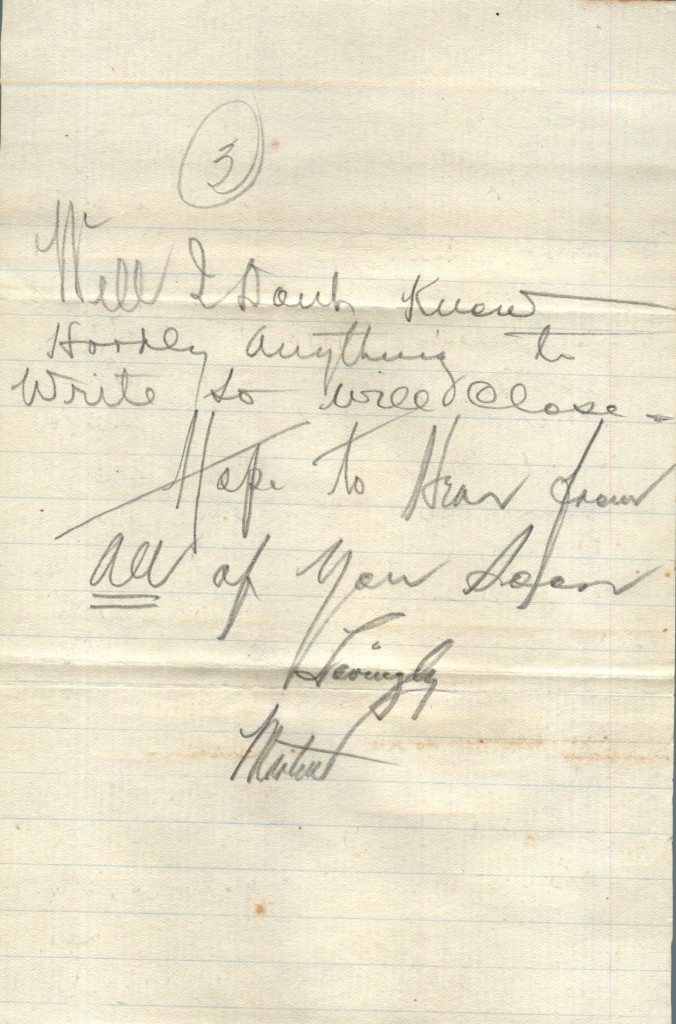 3
Well I Dont Know
Hardly Anything to
Write so will Close -
Hope to Hear from
All of You Soon
Lovingly